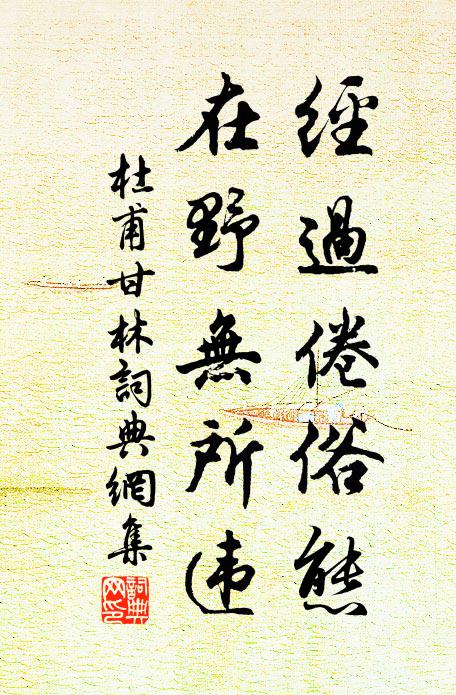 經過倦俗態
在野無所违
杜甫甘林詞典網集
詞典
网印